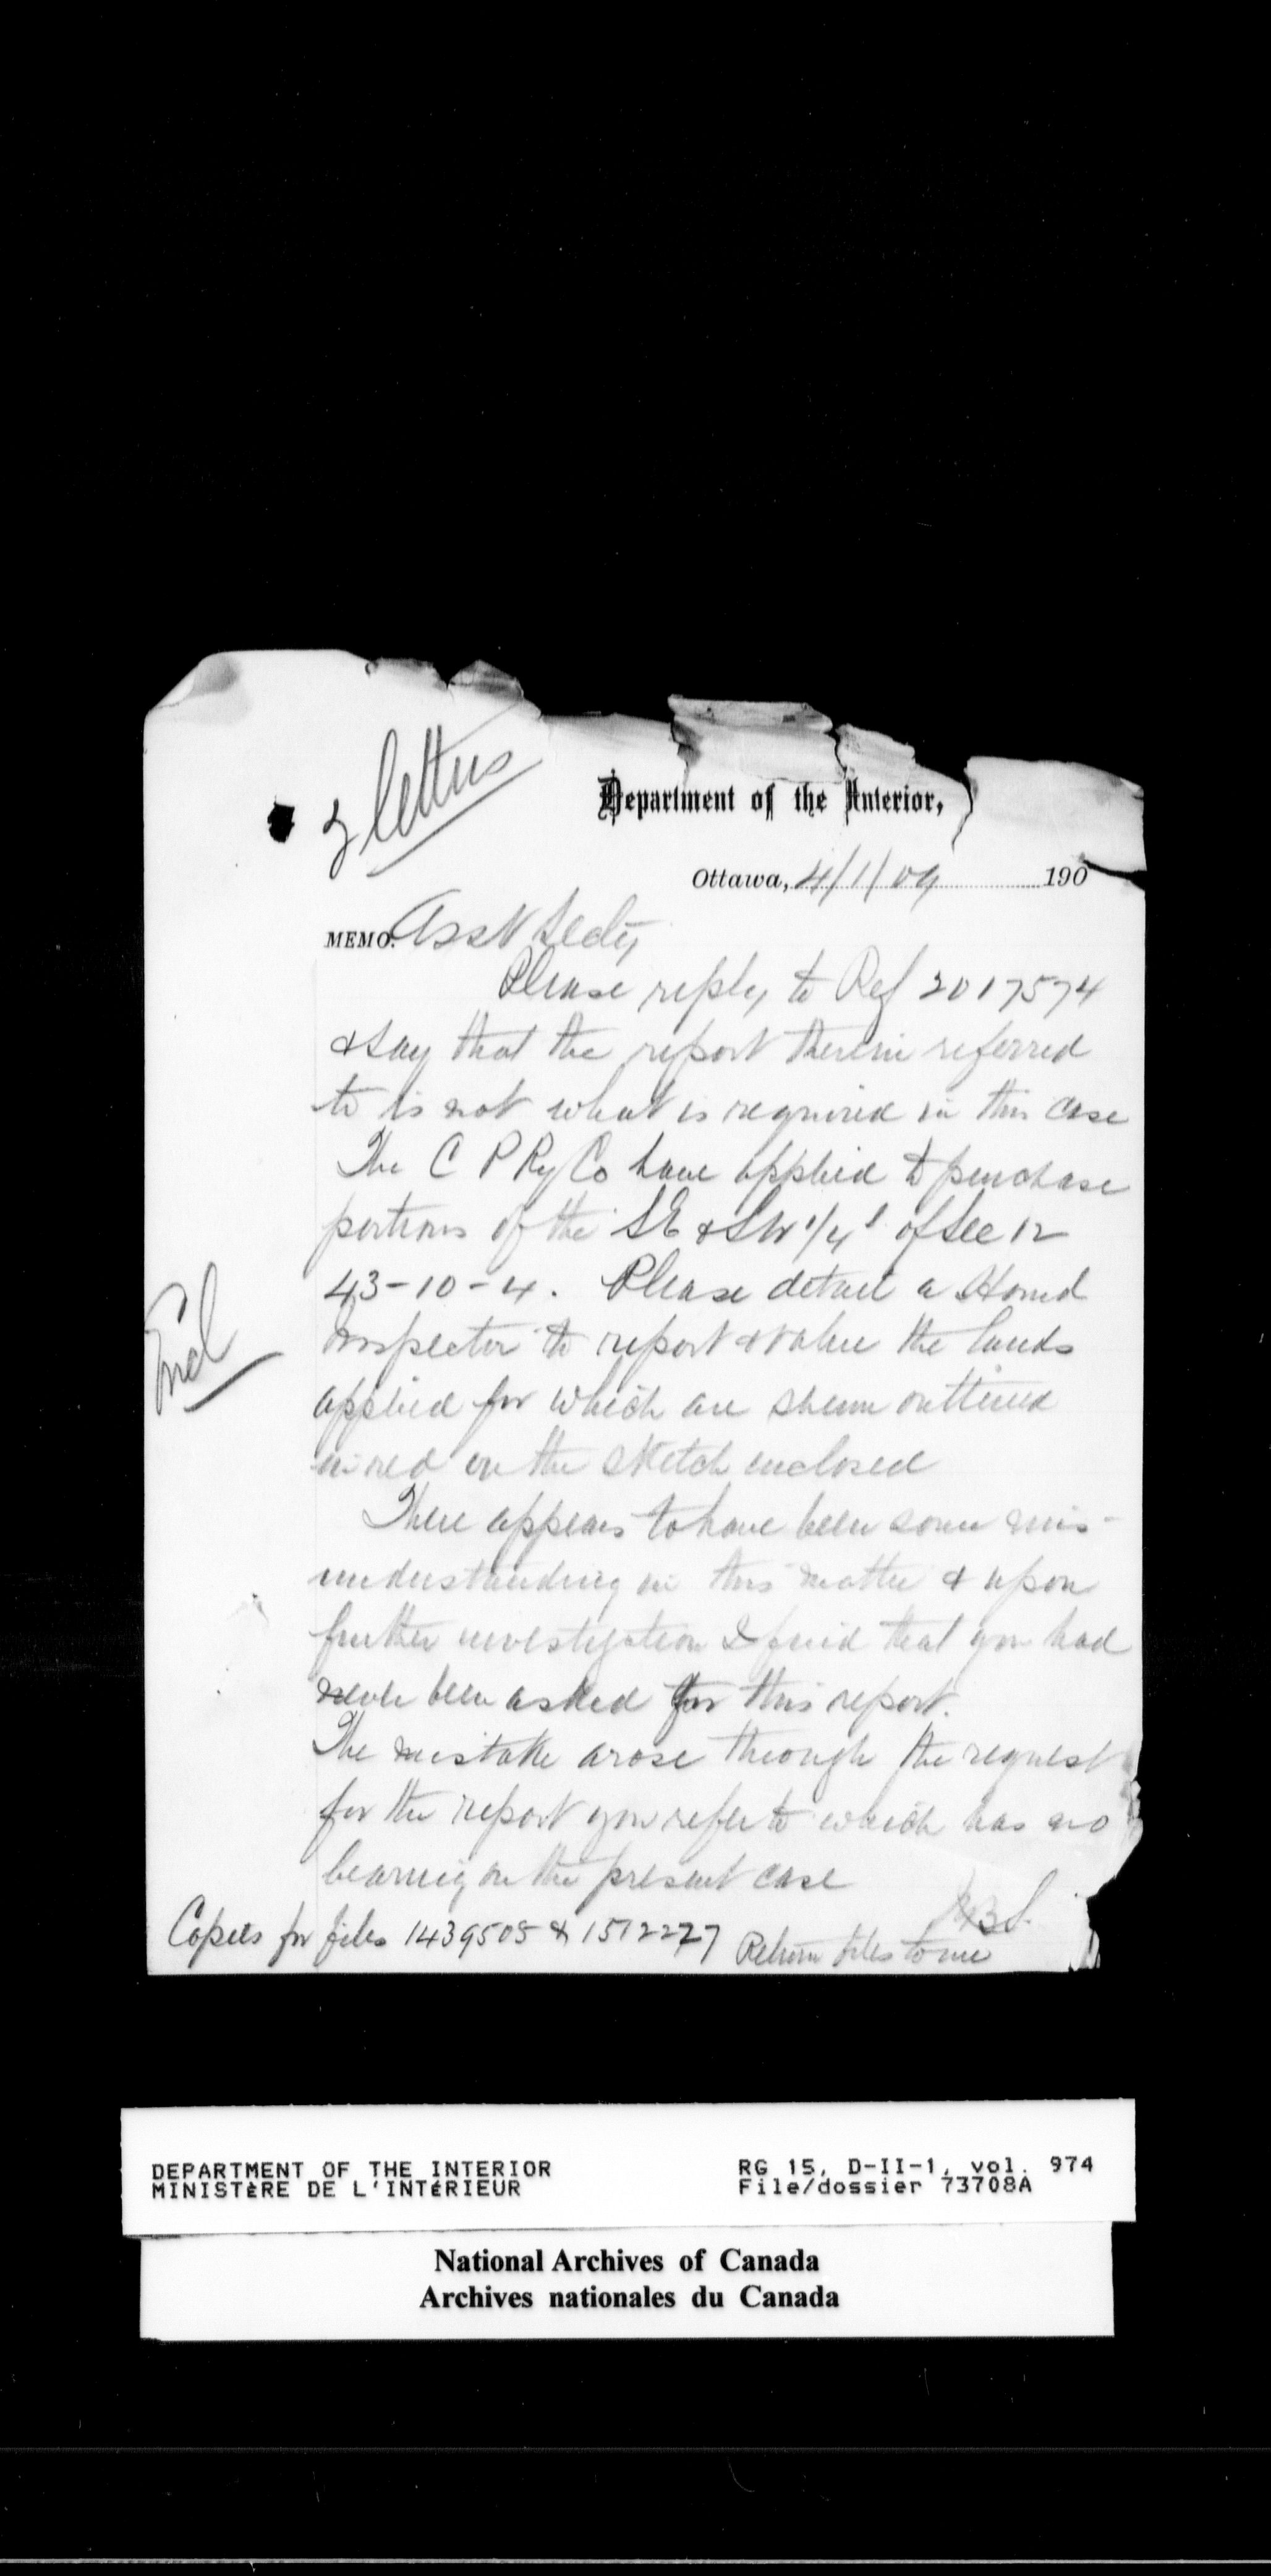 letters
Department of the Interior,
Ottawa, 4/1/09 190
MEMO. Asst Secty
Please reply to Ref 2017574
& say that the report therein referred
to is not what is required in this case
The C P Ry Co have applied to purchase
portions of the SE & SW 1/4s of Sec 12
43-10-4. Please detail a Homd
Inspector to report & value the lands
applied for which are shewn outlined
in red on the sketch enclosed
Encl
There appears to have been some mis-
understanding in this matter & upon
further investigation I find that you had
never been asked for this report.
The mistake arose through the request
for the report you refer to which has no
bearing on the present case
Copies for files 1439505 & 1512227 Return files to me
DEPARTMENT OF THE INTERIOR RG 15, D-II-1, vol. 974
MINISTÈRE DE L'INTÉRIEUR File/dossier 73708A
National Archives of Canada
Archives nationales du Canada